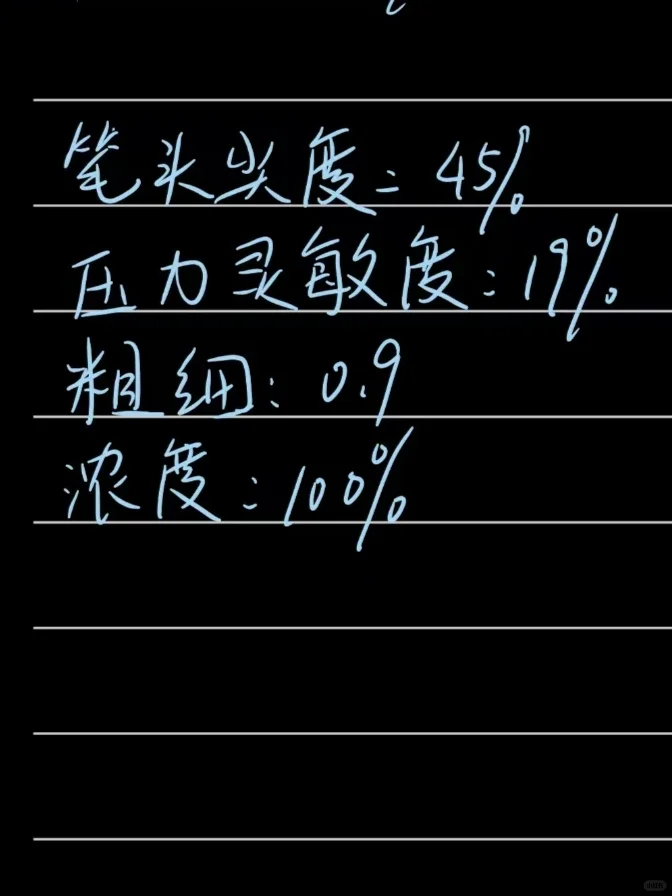 笔头尖度：45%
压力灵敏度：19%
粗细：0.9
浓度：100%